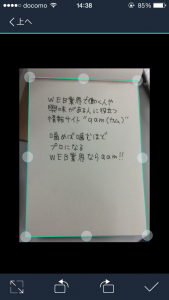 docomo 14:38 85%
上へ
WEB業界で働く人や
興味がある人に役立つ
情報サイト"qam(カム)"
噛めば噛むほど
プロになる
WEB業界ならqam!!